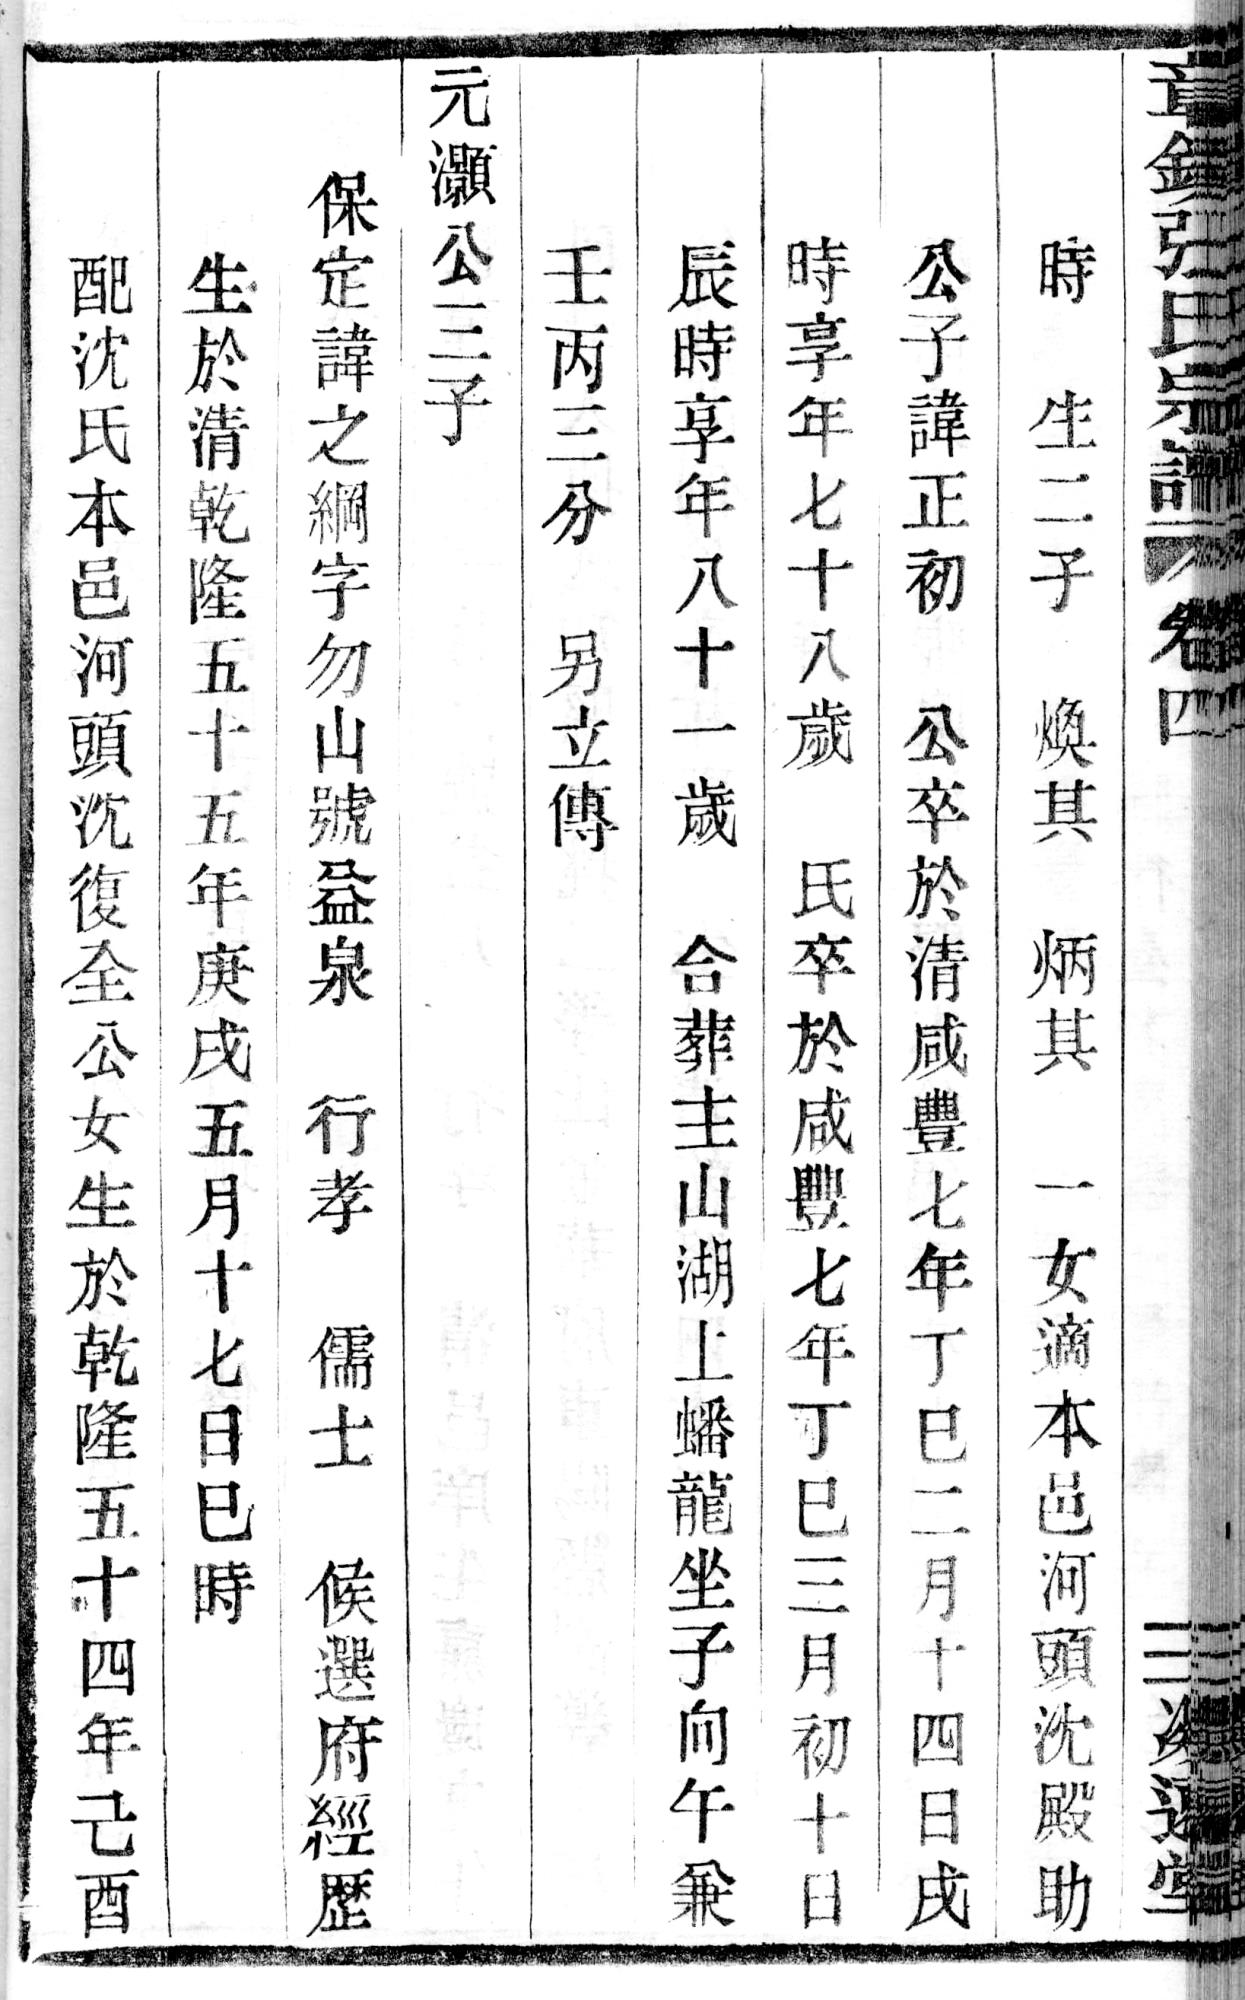 張氏宗譜 卷四
時 生二子 煥其 炳其 一女適本邑河頭沈殿助
公子諱正初 公卒於清咸豐七年丁巳二月十四日戌
時享年七十八歲 氏卒於咸豐七年丁巳三月初十日
辰時享年八十一歲 合葬主山湖上蟠龍坐子向午兼
壬丙三分 另立傳
元灝公三子
保定諱之綱字勿山號益泉 行孝 儒士 候選府經歷
生於清乾隆五十五年庚戌五月十七日巳時
配沈氏本邑河頭沈復全公女生於乾隆五十四年己酉